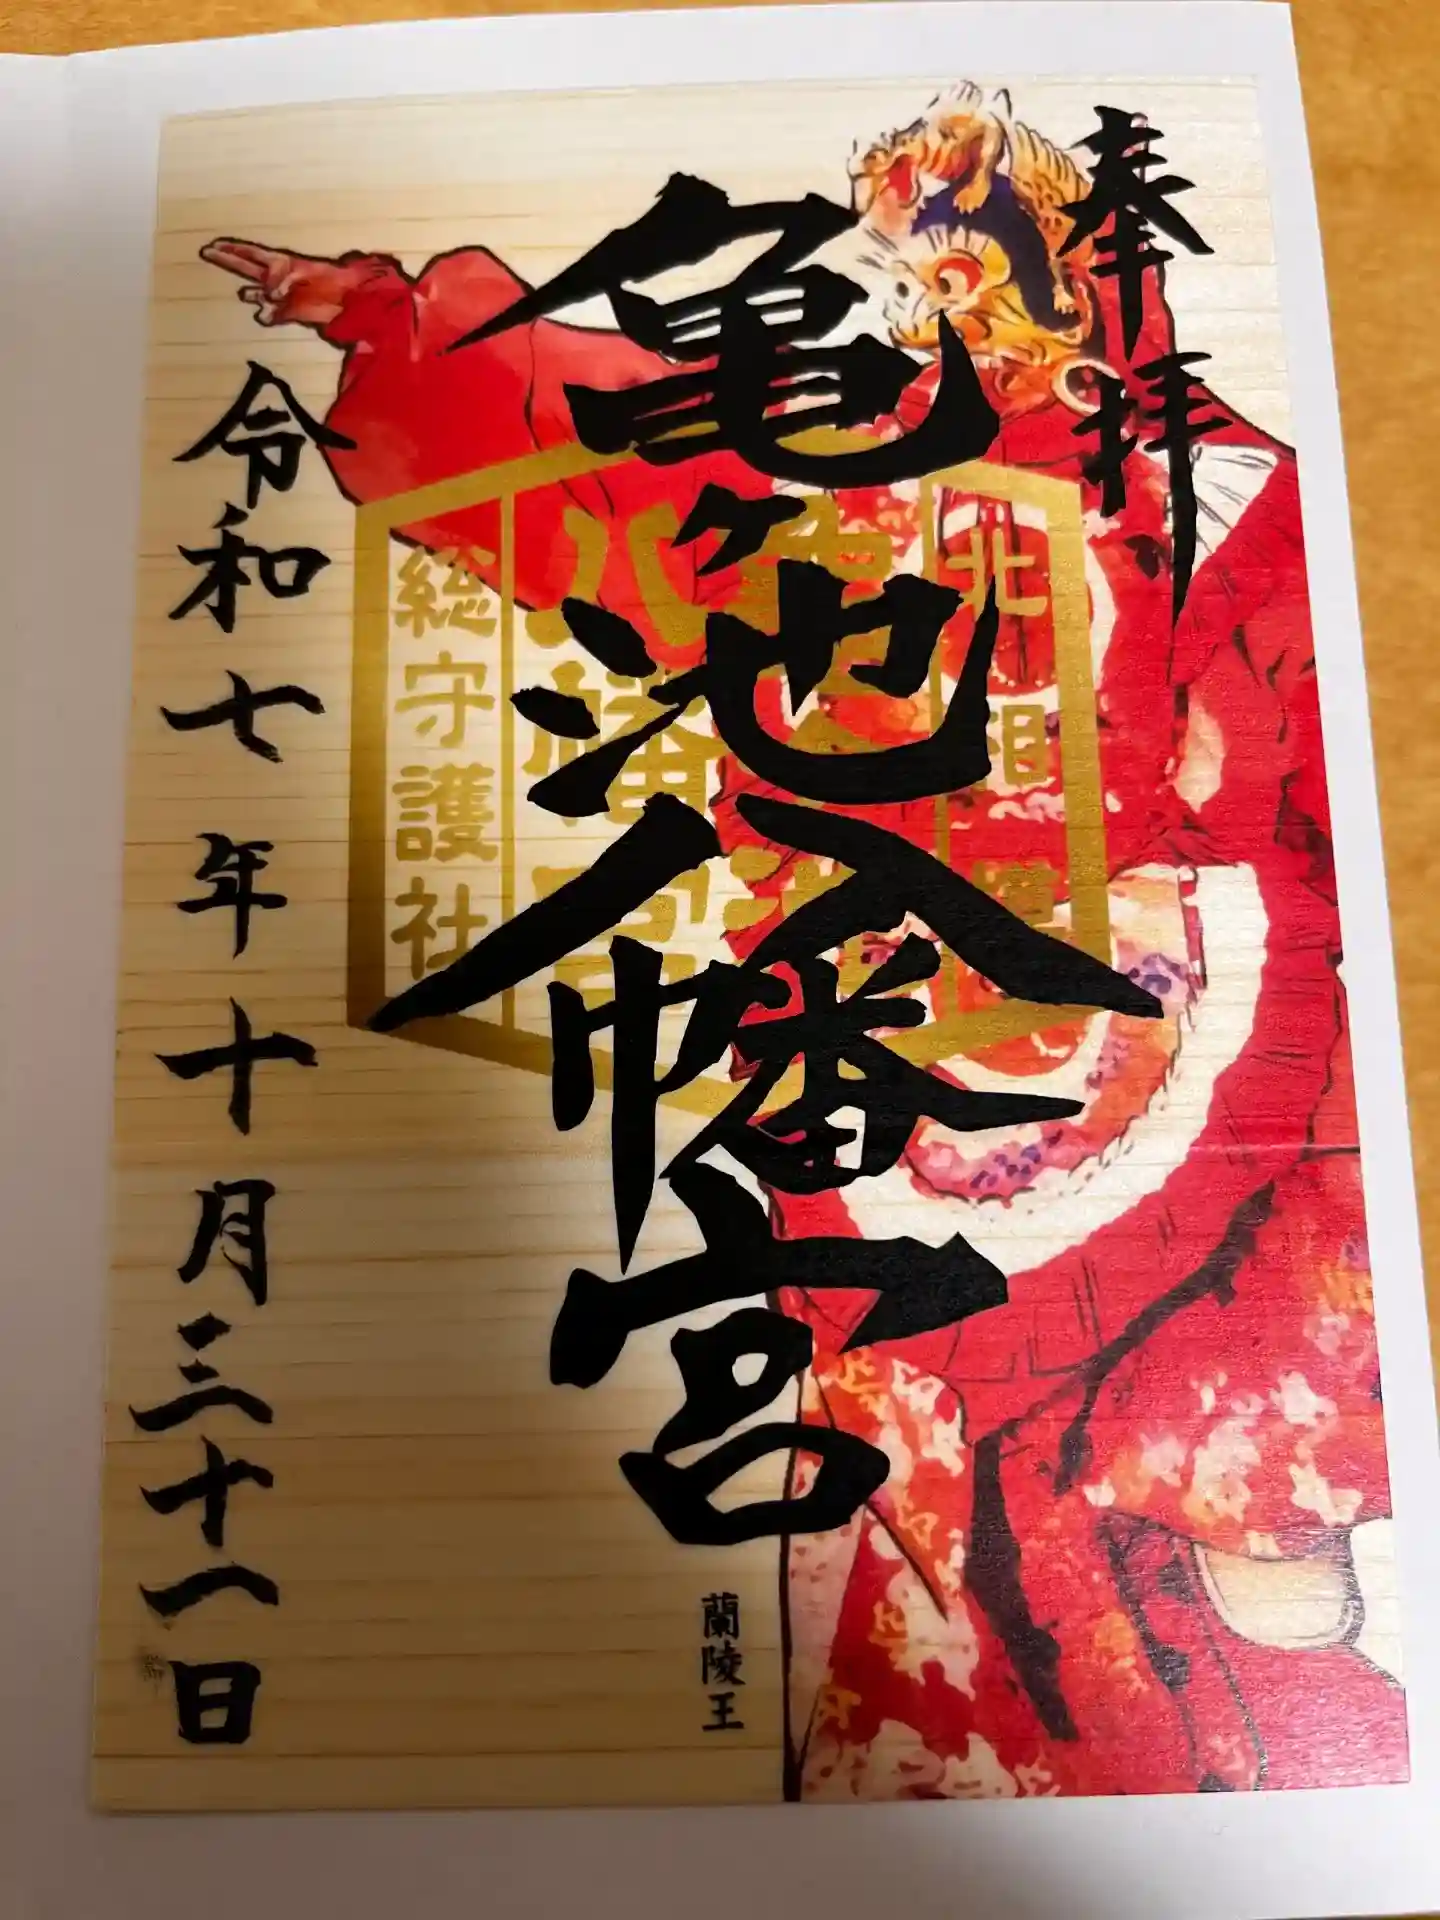 奉拝
亀ヶ池八幡宮
北相模
亀ヶ池
八幡宮
総守護社
蘭陵王
令和七年十月三十一日